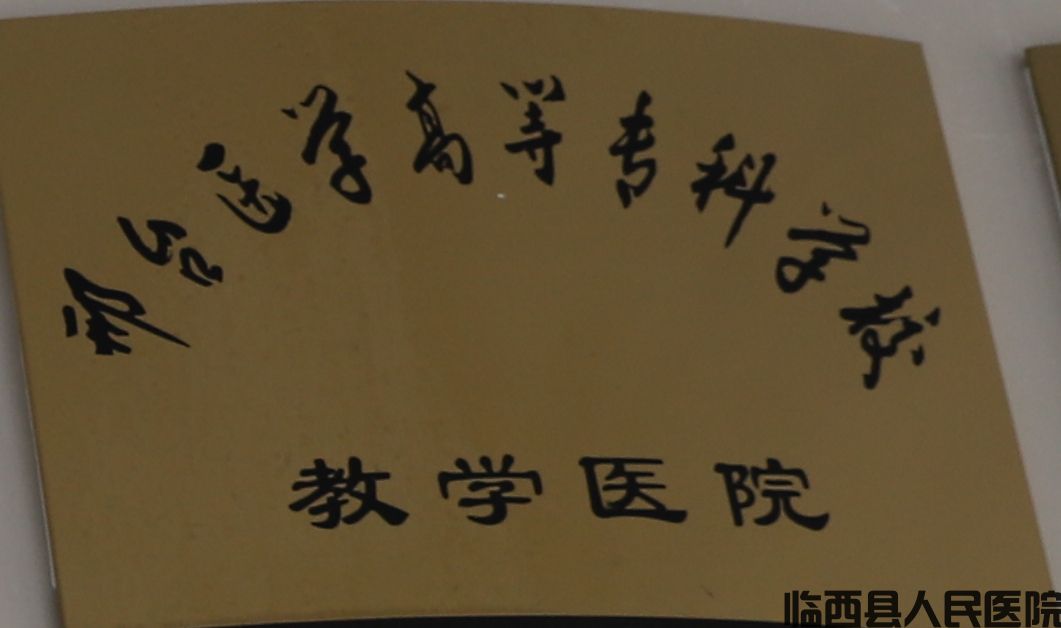 邢台医学高等专科学校
教学医院
临西县人民医院